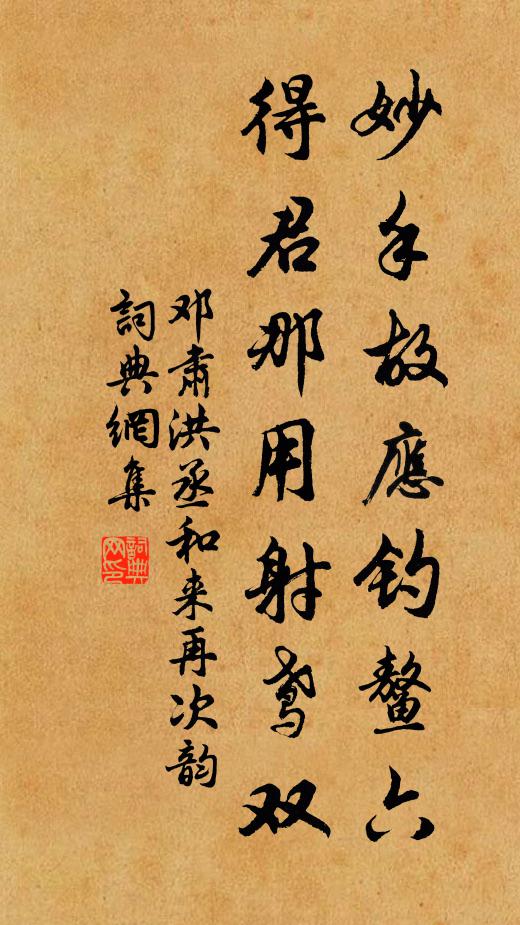 妙手故應钓鳌六
得君那用射鸢双
邓肃洪丞和来再次韵
詞典網集
詞典网印